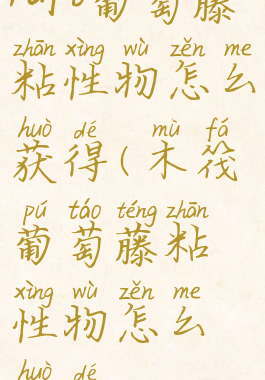 葡萄藤
zhān xìng wù zěn me
粘性物怎么
huò dé mù fá
获得(木筏
pú táo téng zhān
葡萄藤粘
xìng wù zěn me
性物怎么
huò dé